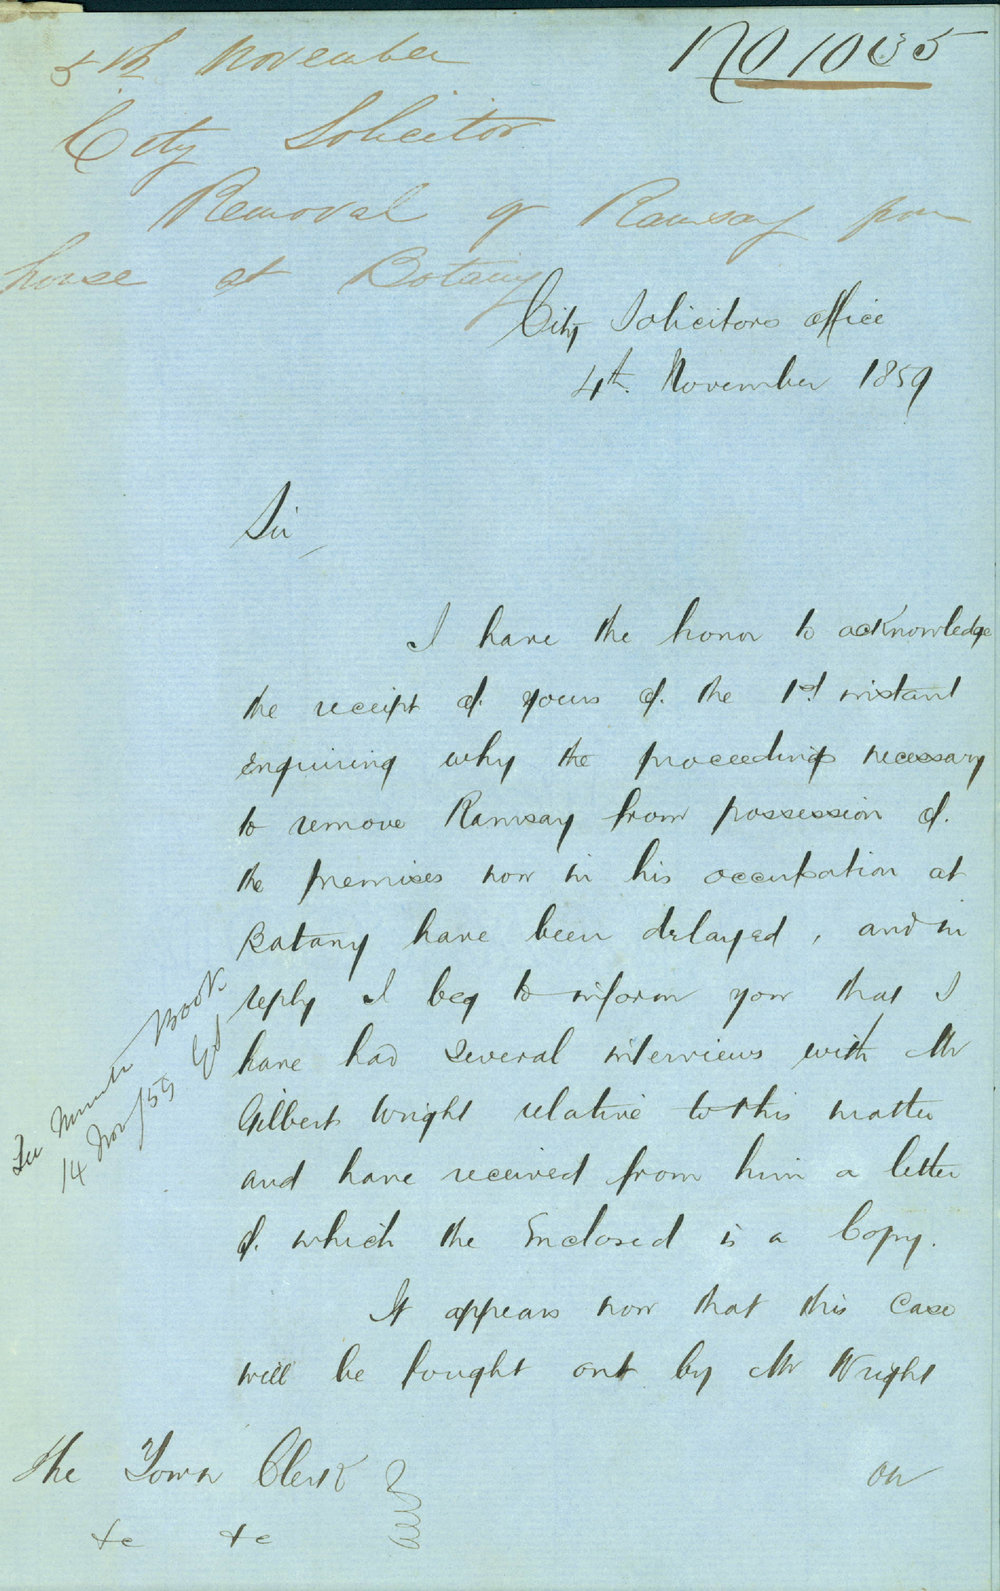 5th November
No 1035
City Solicitor
Removal of Ramsay from
house at Botany
City Solicitors Office
4th. November 1859
Sir,
I have the honor to acknowledge
the receipt of yours of the 1st instant
enquiring why the proceedings necessary
to remove Ramsay from possession of
the premises now in his occupation at
Botany have been delayed, and in
reply I beg to inform you that I
have had several interviews with Mr
Gilbert Wright relative to this matter
and have received from him a letter
of which the Enclosed is a Copy.
It appears now that this Case
will be fought out by Mr Wright
on
The Town Clerk
&c &c
See Minute Book
14 Nov/59